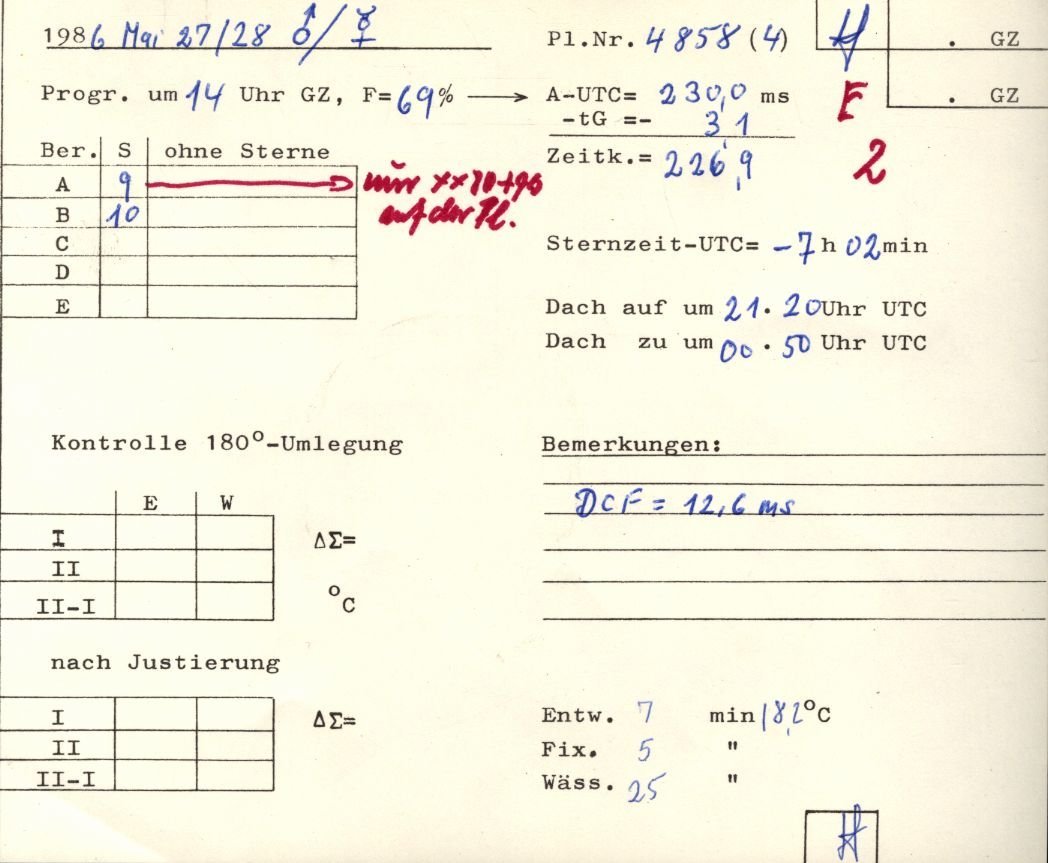 1986 Mai 27/28 ♂/☿
Pl.Nr. 4858 (4)
. GZ
Progr. um 14 Uhr GZ, F=69% → A-UTC= 230,0 ms
E
. GZ
-tG =- 3,1
Zeitk.= 226,9
2
Ber. S ohne Sterne
A 9 → nur xx 70+96
auf der Pl.
B 10
C
D
E
Sternzeit-UTC= -7 h 02 min
Dach auf um 21.20 Uhr UTC
Dach zu um 00.50 Uhr UTC
Kontrolle 180°-Umlegung
E W
I ΔΣ=
II
II-I °C
Bemerkungen:
DCF = 12,6 ms
nach Justierung
I ΔΣ=
II
II-I
Entw. 7 min 18,2°C
Fix. 5 "
Wäss. 25 "